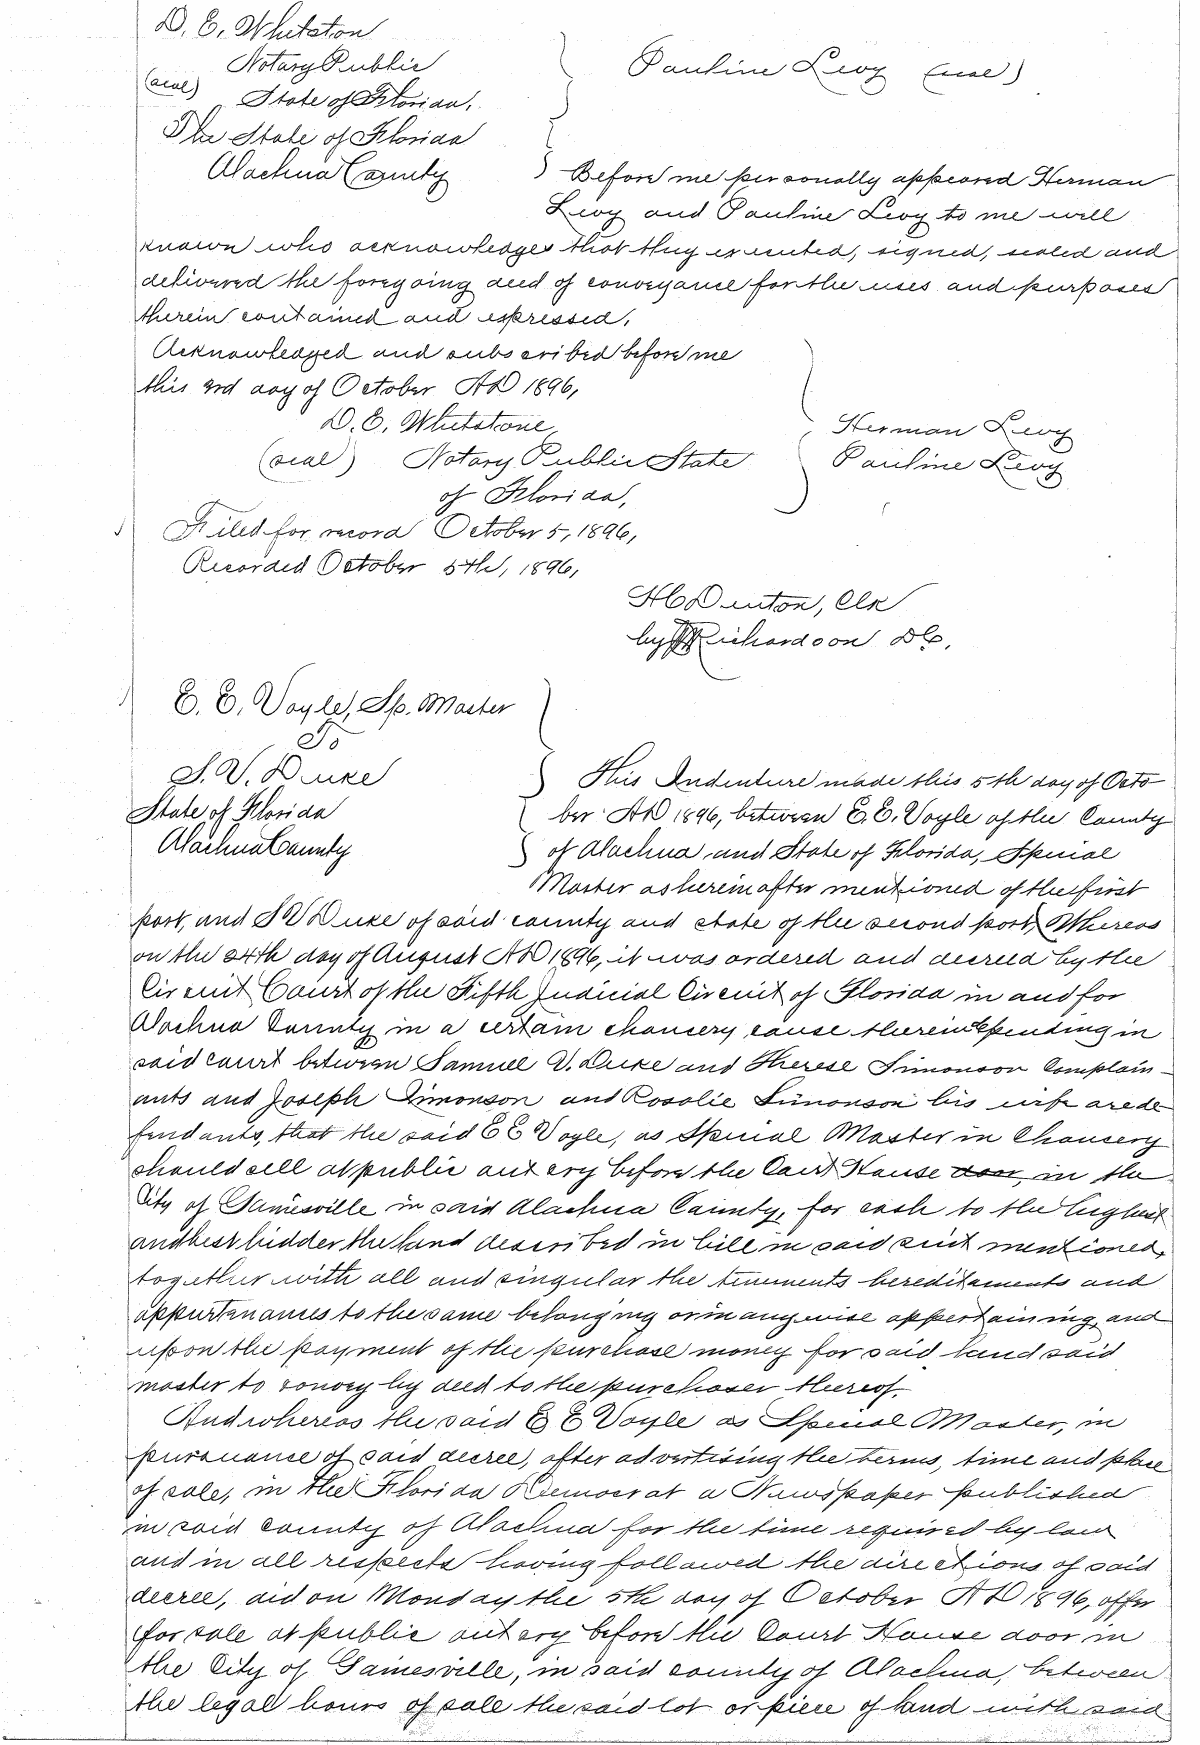 D. E. Whetston
Notary Public
(seal) State of Florida.
Pauline Levy (seal)
The State of Florida
Alachua County } Before me personally appeared Herman
Levy and Pauline Levy to me well
known who acknowledges that they executed, signed, sealed and
delivered the foregoing deed of conveyance for the uses and purposes
therein contained and expressed.
Acknowledged and subscribed before me
this 3rd day of October AD 1896,
D. E. Whetstone,
(seal) Notary Public State
of Florida,
Herman Levy
Pauline Levy
Filed for record October 5, 1896,
Recorded October 5th, 1896,
H C Denton, Clk
by Richardson DC.
E. E. Voyle, Sp. Master
To
S. V. Duke
State of Florida
Alachua County
} This Indenture made this 5th day of Octo
ber AD 1896, between E. E. Voyle of the County
of Alachua and State of Florida, Special
Master as hereinafter mentioned of the first
part, and S V Duke of said county and state of the second part, Whereas
on the 24th day of August AD 1896, it was ordered and decreed by the
Circuit Court of the Fifth Judicial Circuit of Florida in and for
Alachua County in a certain chancery cause therein depending in
said court between Samuel V. Duke and Therese Simonson Complain-
ants and Joseph Simonson and Rosolie Simonson his wife are de
fendants, that the said E E Voyle, as Special Master in Chancery
should sell at public autcry before the Court House door, in the
City of Gainesville in said Alachua County, for cash to the highest
and best bidder the land described in bill in said suit mentioned,
together with all and singular the tenements hereditaments and
appurtenances to the same belonging or in anywise appertaining, and
upon the payment of the purchase money for said land said
master to convey by deed to the purchaser thereof.
And whereas the said E E Voyle as Special Master, in
pursuance of said decree, after advertising the terms, time and place
of sale, in the Florida Democrat a Newspaper published
in said county of Alachua for the time required by law
and in all respects having followed the directions of said
decree, did on Monday the 5th day of October AD 1896, offer
for sale at public autcry before the Court House door in
the City of Gainesville, in said county of Alachua, between
the legal hours of sale the said lot or piece of land with said